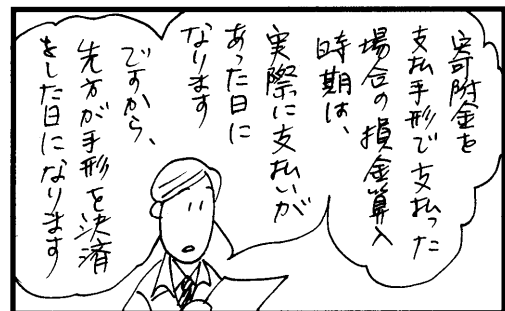 寄附金を
支払手形で支払った
場合の損金算入
時期は、
実際に支払いが
あった日に
なります
ですから、
先方が手形を決済
をした日になります